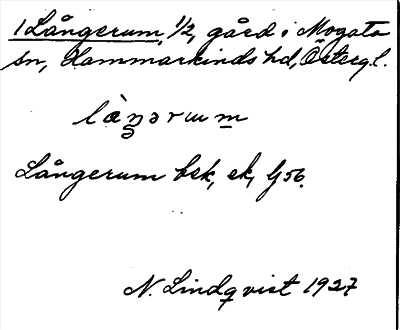 1 Långerum, 1/2, gård i Mogata
sn, Hammarkinds hd, Östergl.
Långerum bsk, ek, G 56.
N. Lindqvist 1927